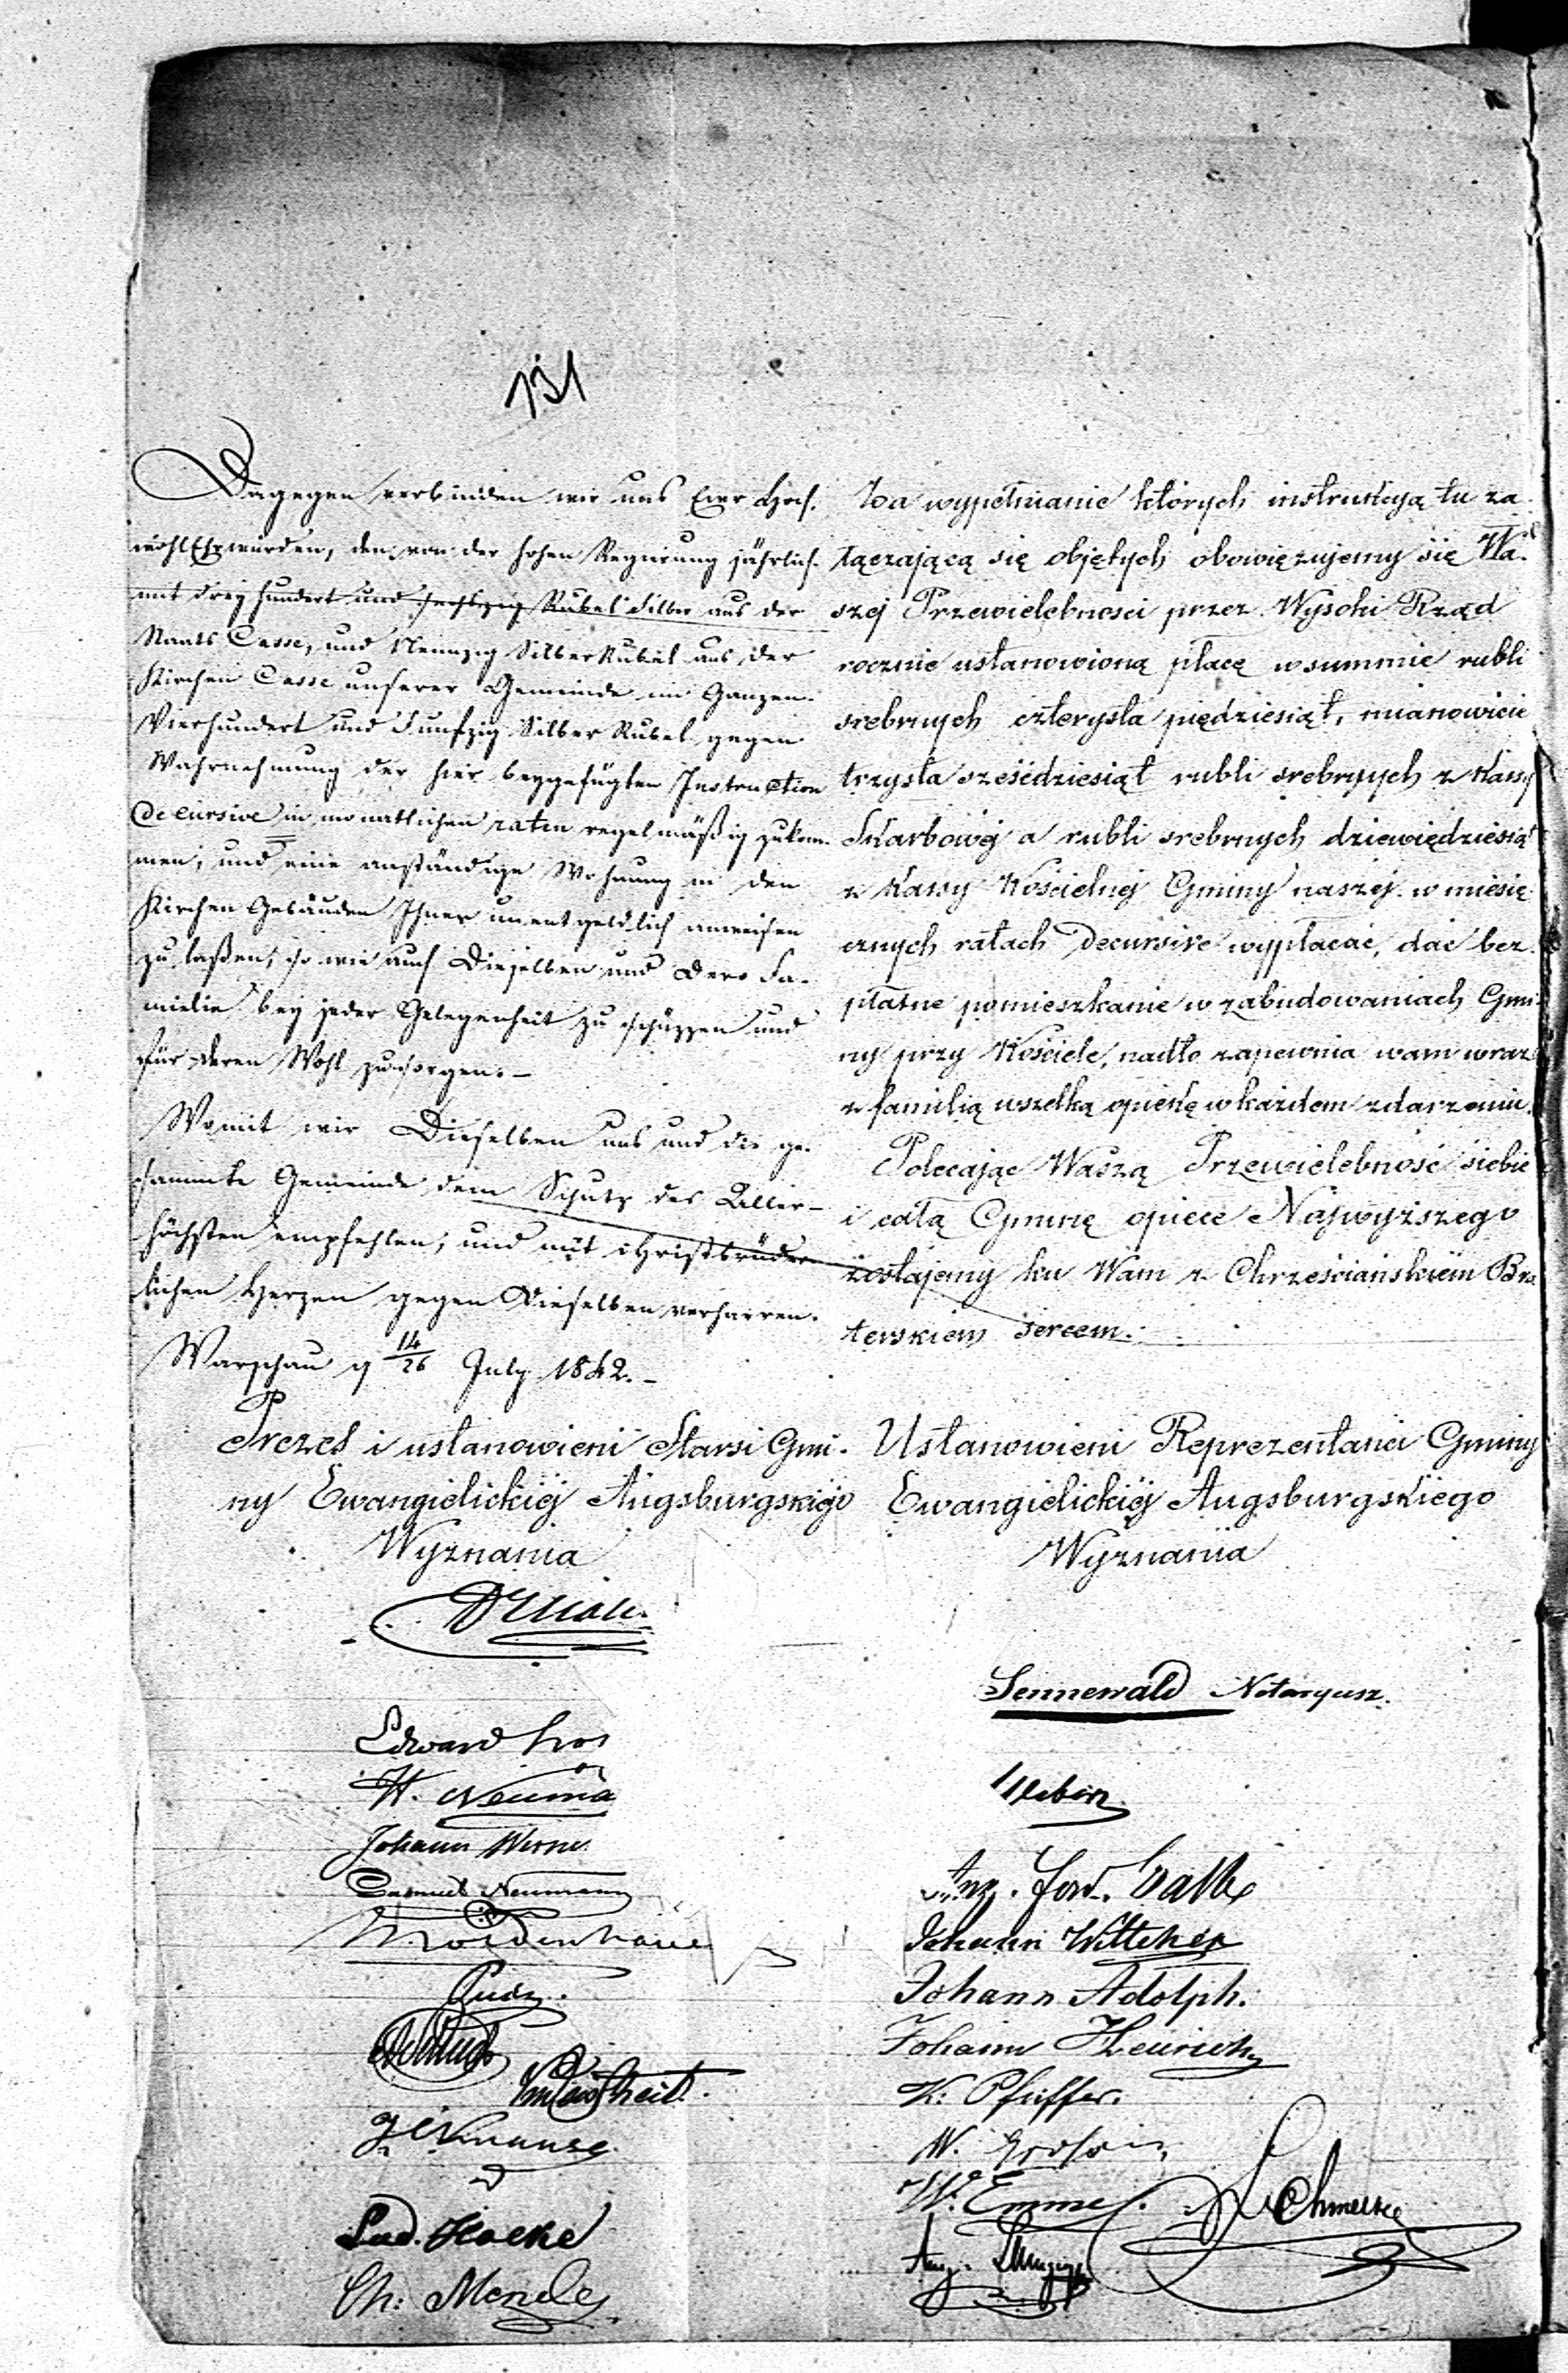 131
Dagegen verbinden wir uns Euer Hoch-
wohlEhrwürden, den von der hohen Regierung jährlich
mit dreyhundert und sechszig Rubel Silber aus der
Staats Casse, und Neunzig Silber Rubel aus der
Kirchen Casse unserer Gemeinde im Ganzen
Vierhundert und Funfzig Silber Rubel gegen
Wahrnehmung der hier beygefügten Instruction
decursive in monatlichen raten regelmäßig zukom-
men, und eine anständige Wohnung in den
Kirchen Gebäuden Ihner unentgeldlich anweisen
zu laßen, so wie auch Dieselben und Dero Fa-
milie bey jeder Gelegenheit zu schüzzen und
für deren Wohl zu sorgen.–
Womit wir Dieselben uns und die ge-
sammte Gemeinde dem Schutz des Aller-
höchsten empfehlen, und mit christbrüder
lichen Herzen gegen Dieselben verharren.
Warschau d 14/26 July 1842.–
Za wypełnianie których instrukcyą tu za
łączającą się objętych obowięzujemy się Wa-
szej Przewielebnosci przez Wysoki Rząd
rocznie ustanowioną płacę w summie rubli
srebrnych czterysta piędziesiąt, mianowicie
trzysta sześćdziesiąt rubli srebrnych z Kassy
Skarbowej a rubli srebrnych dziewiędziesiąt
z Kassy Kościelnej Gminy naszej w miesię
cznych ratach decursive wypłacać, dać bez-
płatne pomieszkanie w zabudowaniach Gmi-
ny przy Kościele, nadto zapewnia wam wraz
z familią wszelką opiekę w każdem zdarzeniu.
Polecając Waszą Przewielebność siebie
i całą Gminę opiece Najwyższego
zostajemy ku Wam z Chrześciańskiem Bra
terskiem sercem.
Prezes i ustanowieni Starsi Gmi-
ny Ewangielickiej Augsburgskiego
Wyznania
Edward
W. Neuma
Johann Werne
Samuel Neumann
Moldenhauer
J. Knause
Lud. Hoeke
Ch: Mendes
Ustanowieni Reprezentanci Gminy
Ewangielickiej Augsburgskiego
Wyznania
Sennewald Notaryusz.
Johann Wittcher
Johann Adolph.
Johann Heinrich
K: Pfeiffer.
W.
W. Emmel.
Aug.